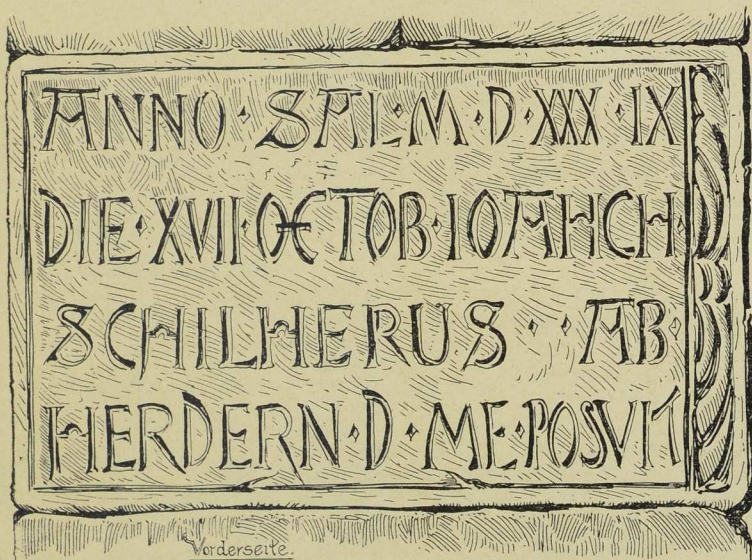 ANNO · SAL · M · D · XXX · IX
DIE · XVII · OCTOB · IOAHCH ·
SCHILHERUS · · AB ·
HERDERN · D · ME · POSVIT
Vorderseite.